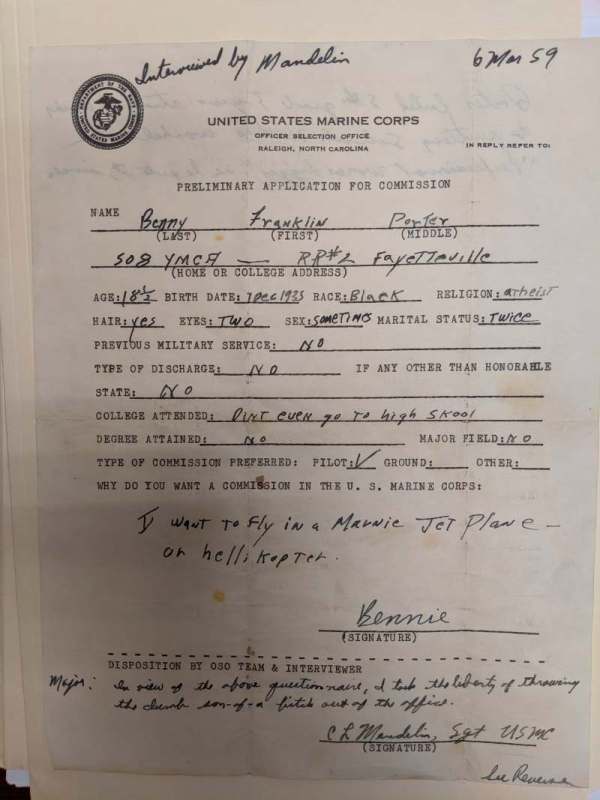 Interviewed by Mandelin 6 Mar 59
DEPARTMENT OF THE NAVY
UNITED STATES MARINE CORPS
UNITED STATES MARINE CORPS
OFFICER SELECTION OFFICE
RALEIGH, NORTH CAROLINA
IN REPLY REFER TO:
PRELIMINARY APPLICATION FOR COMMISSION
NAME Benny Franklin Porter
(LAST) (FIRST) (MIDDLE)
508 YMCA — RR#2 Fayetteville
(HOME OR COLLEGE ADDRESS)
AGE: 18 1/2 BIRTH DATE: 7 Dec 1935 RACE: Black RELIGION: atheist
HAIR: yes EYES: TWO SEX: sometimes MARITAL STATUS: Twice
PREVIOUS MILITARY SERVICE: NO
TYPE OF DISCHARGE: NO IF ANY OTHER THAN HONORABLE
STATE: NO
COLLEGE ATTENDED: Dint even go to high skool
DEGREE ATTAINED: NO MAJOR FIELD: NO
TYPE OF COMMISSION PREFERRED: PILOT: ✓ GROUND: OTHER:
WHY DO YOU WANT A COMMISSION IN THE U. S. MARINE CORPS:
I want to fly in a Marnie Jet Plane —
or hellikopter.
Bennie
(SIGNATURE)
DISPOSITION BY OSO TEAM & INTERVIEWER
Major: In view of the above questionnaire, I took the liberty of throwing
the dumb son-of-a bitch out of the office.
C L Mandelin, Sgt USMC
(SIGNATURE)
See Reverse